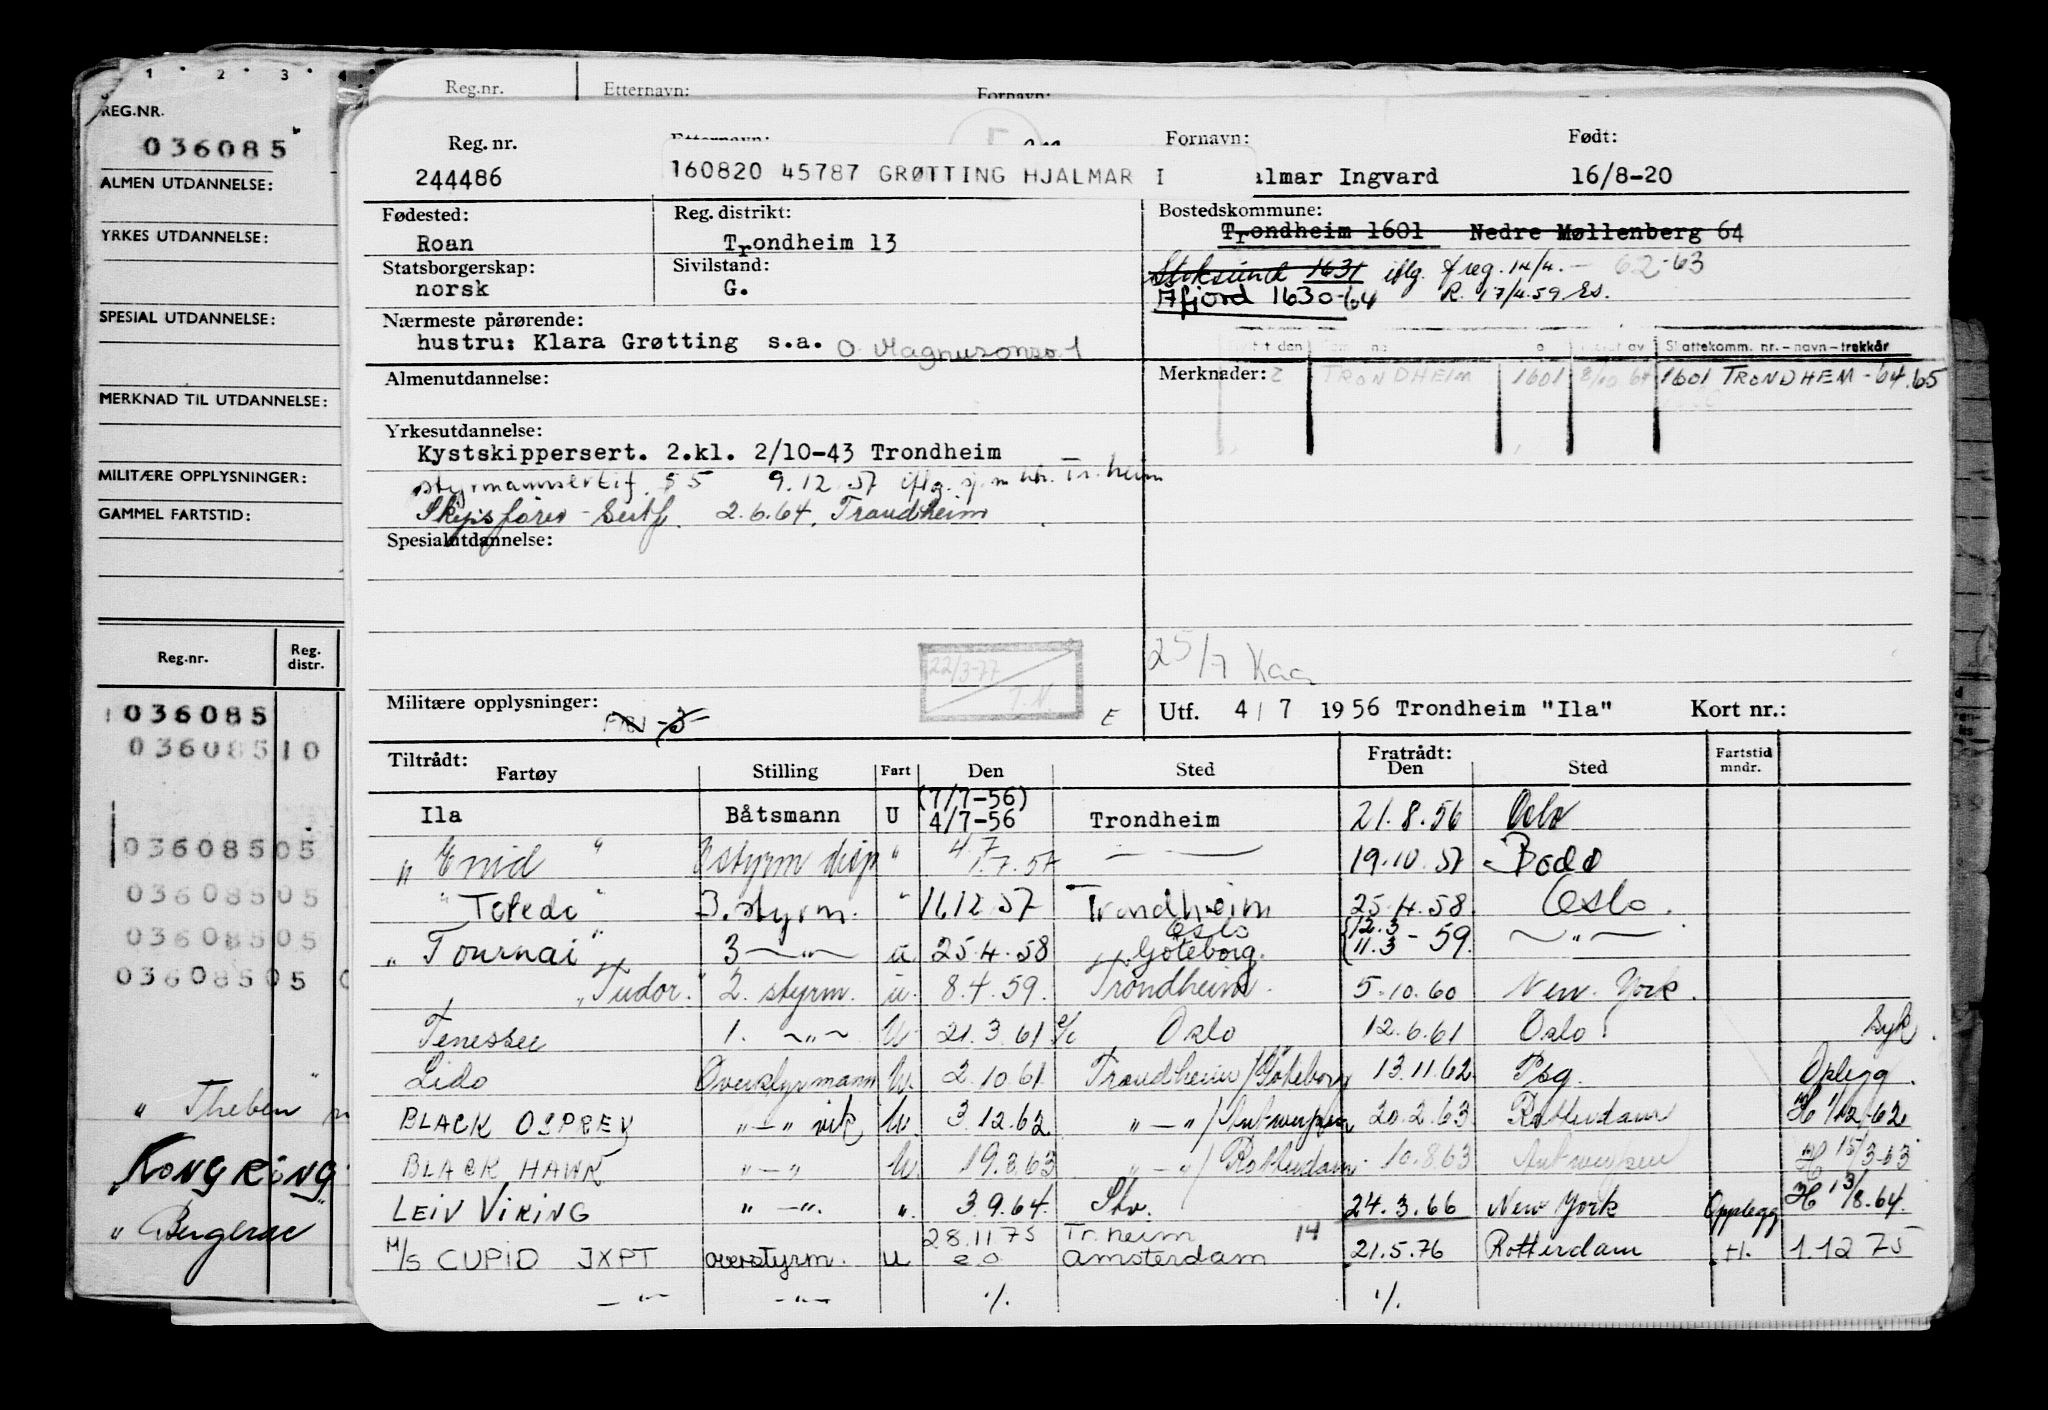 1 2 3 4
REG.NR.
036085
ALMEN UTDANNELSE:
YRKES UTDANNELSE:
SPESIAL UTDANNELSE:
MERKNAD TIL UTDANNELSE:
MILITÆRE OPPLYSNINGER:
GAMMEL FARTSTID:
Reg.nr. Reg. distr.
036085
036085 10
036085 05
036085 05
036085 05
036085 05
" Theben
"KONGRING"
" Bergerac
Reg.nr. Etternavn: Fornavn:
Reg. nr. Etternavn: Fornavn: Født:
244486 160820 45787 GRØTTING HJALMAR I almar Ingvard 16/8-20
Fødested: Reg. distrikt: Bostedskommune:
Roan Trondheim 13 Trondheim 1601 Nedre Møllenberg 64
Statsborgerskap: Sivilstand: Stoksund 1631 iflg. freg. 14/4. - 62-63
norsk G. Åfjord 1630-64 R. 17/4.59 Es.
Nærmeste pårørende:
hustru: Klara Grøtting s.a. O Magnusonsv 1
Skattekomm. nr. - navn - trekkår
Almenutdannelse: Merknader: TRONDHEIM 1601 8/10 64 1601 TRONDHEIM - 64.65
Yrkesutdannelse:
Kystskippersert. 2.kl. 2/10-43 Trondheim
Styrmannsertif. § 5 9.12.57 iflg. sj.m.ktr. Tr.heim
Skipsfører-Sertf. 2.6.64. Trondheim
Spesialutdannelse:
22/3-77
T.N.
25/7 Kaa
Militære opplysninger: E Utf. 4/7 1956 Trondheim "Ila" Kort nr.:
Tiltrådt: Fartøy Stilling Fart Den Sted Fratrådt: Den Sted Fartstid mndr.
Ila Båtsmann U (7/7-56) 4/7-56 Trondheim 21.8.56 Oslo
" Enid " styrm disp " 4.7 1.7.57 — 19.10.57 Bodø
" Toledo " 3. styrm. " 11.12.57 Trondheim 25.4.58. Oslo.
" Tournai " 3 —"— u 25.4.58 Oslo Göteborg. {12.3 11.3 - 59. —"—
"Tudor." 2. styrm. u. 8.4.59. Trondheim. 5.10.60 New York.
Tenessee 1. —"— U 21.3.61 Oslo 12.6.61 Oslo syk.
Lido Overstyrmann U. 2.10.61. Trondheim/Göteborg 13.11.62. Psg. Oplegg.
BLACK OSPREY "—" vik U. 3.12.62 "—"/Antwerpen 20.2.63 Rotterdam H 1/12-62
BLACK HAWK "—" U. 19.3.63 "—"/Rotterdam. 10.8.63 Antwerpen H 15/3-63
LEIV VIKING "—". ". 3.9.64. Stv. 24.3.66 New York Opplegg H 13/8.64.
M/S CUPID JXPT overstyrm. u 28.11.75 e.o. Tr.heim Amsterdam 14 21.5.76 Rotterdam H. 1.12 75
—"— —"— ./. ./.